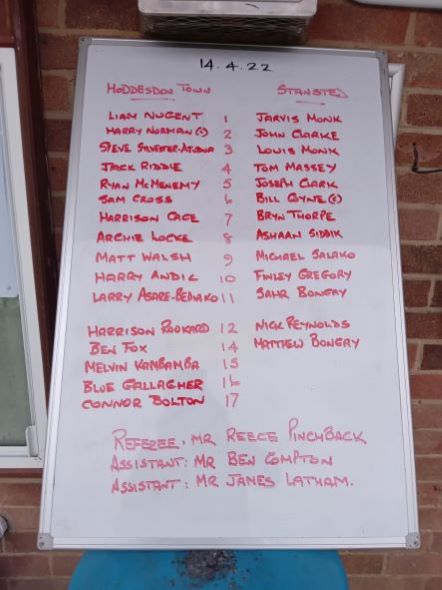 14.4.22
HODDESDON TOWN STANSTED
LIAM NUGENT 1 JARVIS MONK
HARRY NORMAN (C) 2 JOHN CLARKE
STEVE 3 LOUIS MONK
JACK RIDDLE 4 TOM MASSEY
RYAN MCMENEMY 5 JOSEPH CLARK
SAM CROSS 6 BILL COYNE (C)
HARRISON CAGE 7 BRYN THORPE
ARCHIE LOCKE 8 ASHAAN SIDDIK
MATT WALSH 9 MICHAEL SALAKO
HARRY ANDIC 10 FINLEY GREGORY
LARRY ASARE-BEDIAKO 11 SAHR BONGAY
HARRISON 12 NICK REYNOLDS
BEN FOX 14 MATTHEW BONGAY
MELVIN KAMBAMBA 15
BLUE GALLAGHER 16
CONNOR BOLTON 17
REFEREE: MR REECE PINCHBACK
ASSISTANT: MR BEN COMPTON
ASSISTANT: MR JAMES LATHAM.